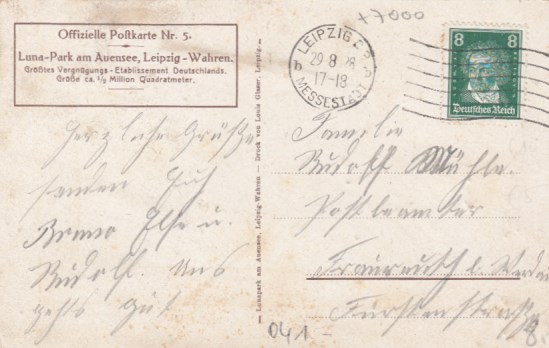 Offizielle Postkarte Nr. 5.
Luna-Park am Auensee, Leipzig-Wahren.
Größtes Vergnügungs-Etablissement Deutschlands.
Größe ca. ½ Million Quadratmeter.
+7000
LEIPZIG
29 8 28
17-18
b
MESSESTADT
8 8
Deutsches Reich
Herzliche Grüße
senden Euch
Bruno Else u.
Rudolf. Uns
gehts gut
Lunapark am Auensee, Leipzig-Wahren — Druck von Louis Glaser, Leipzig.
Familie
Rudolf Mühle.
Postbeamter
Fraureuth b. Werdau
Fürstenstraße
8
041 -